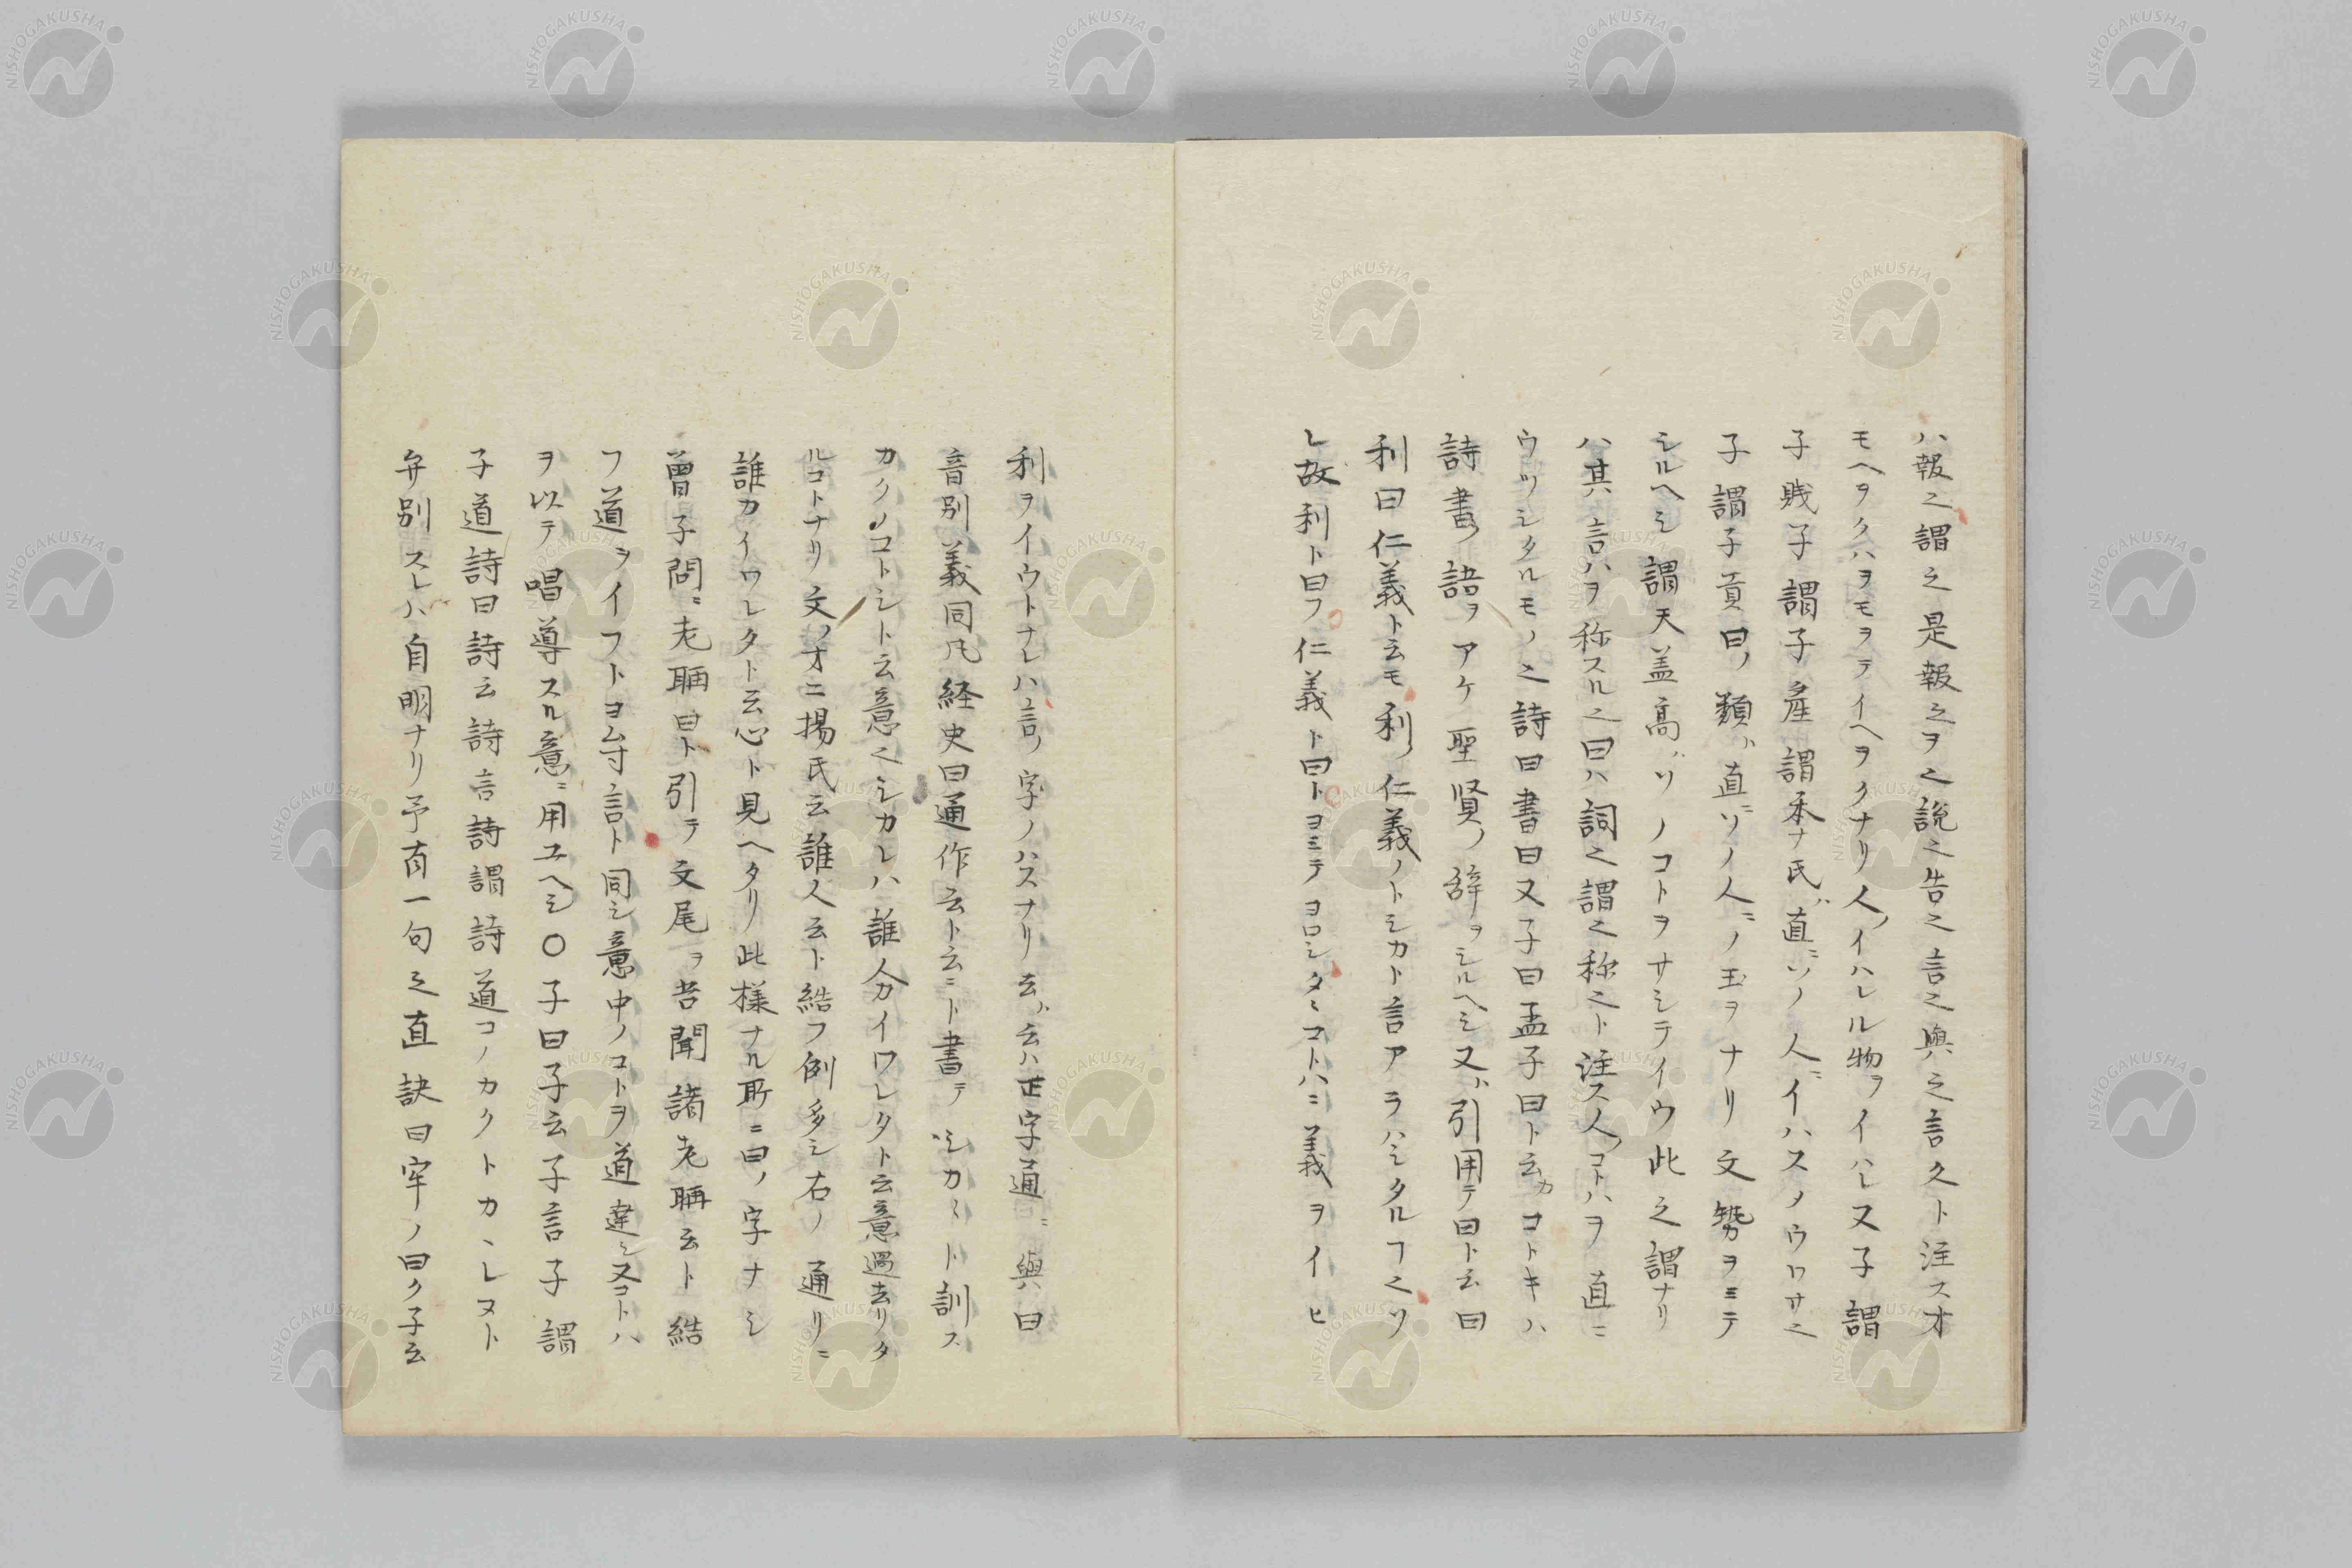 ハ報之謂之是報之ヲ之説之告之言之與之言久ト注スオ
モヘヲクハヲモヲテイヘヲクナリ人ノイハレル物ヲイハレ又子謂
子賤子謂子産謂季氏ハ直ニソノ人ニイハスノウワサ之
子謂子貢曰ノ類ハ直ニソノ人ニノ玉ヲナリ文勢ヲミテ
シルヘシ謂天盖高ハソノコトヲサシテイウ此之謂ナリ
ハ其言ハヲ称スル之曰ハ詞之謂之称之ト注ス人ノコトハヲ直ニ
ウツシタルモノ之詩曰書曰又子曰孟子曰ト云カコトキハ
詩書ノ語ヲアケ聖賢ノ辞ヲシルヘシ又ハ引用テ曰ト云曰
利曰仁義ト云モ利ノ仁義ノトシカト言アラハシタルフ之ソ
レ故利ト曰フ仁義ト曰トヨミテヨロシタヽコトハニ義ヲイヒ
利ヲイウトナレハ言ノ字ノハスナリ云ハ云ハ正字通ニ與曰
音別義同凡経史曰通作云ト云ニト書テシカ〻ト訓ス
カクノコトシト云意之シカレハ誰分イワレタト云意過去リタ
ルコトナリ文ノオニ揚氏云誰人云ト結フ例多シ右ノ通リニ
誰カイワレタト云心ト見ヘタリ此様ナル所ニ曰ノ字ナシ
曽子問ニ老聃曰ト引テ文尾ヲ吾聞諸老聃云ト結
フ道ヲイフトヨム寸言ト同シ意中ノコトヲ道達シ又コトハ
ヲ以テ唱導スル意ニ用ユヘシ〇子曰子云子言子謂
子道詩曰詩云詩言詩謂詩道コノカクトカヽレヌト
弁別スレハ自明ナリ予有一句之直訣曰牢ノ曰ク子云